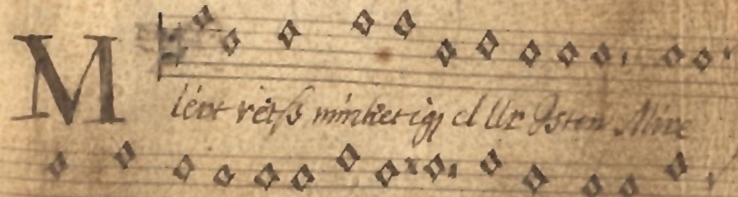 Miért vetß minket igy el Ur Isten Mire